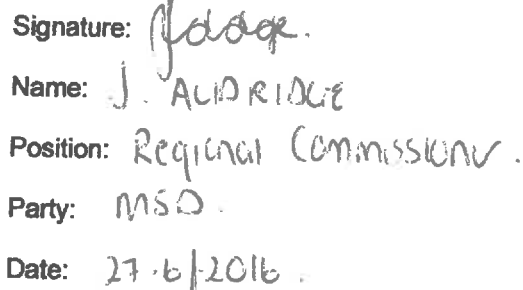 Signature:
Name: J. ALDRIDGE
Position: Regional Commissioner.
Party: MSD.
Date: 27.6.2016.